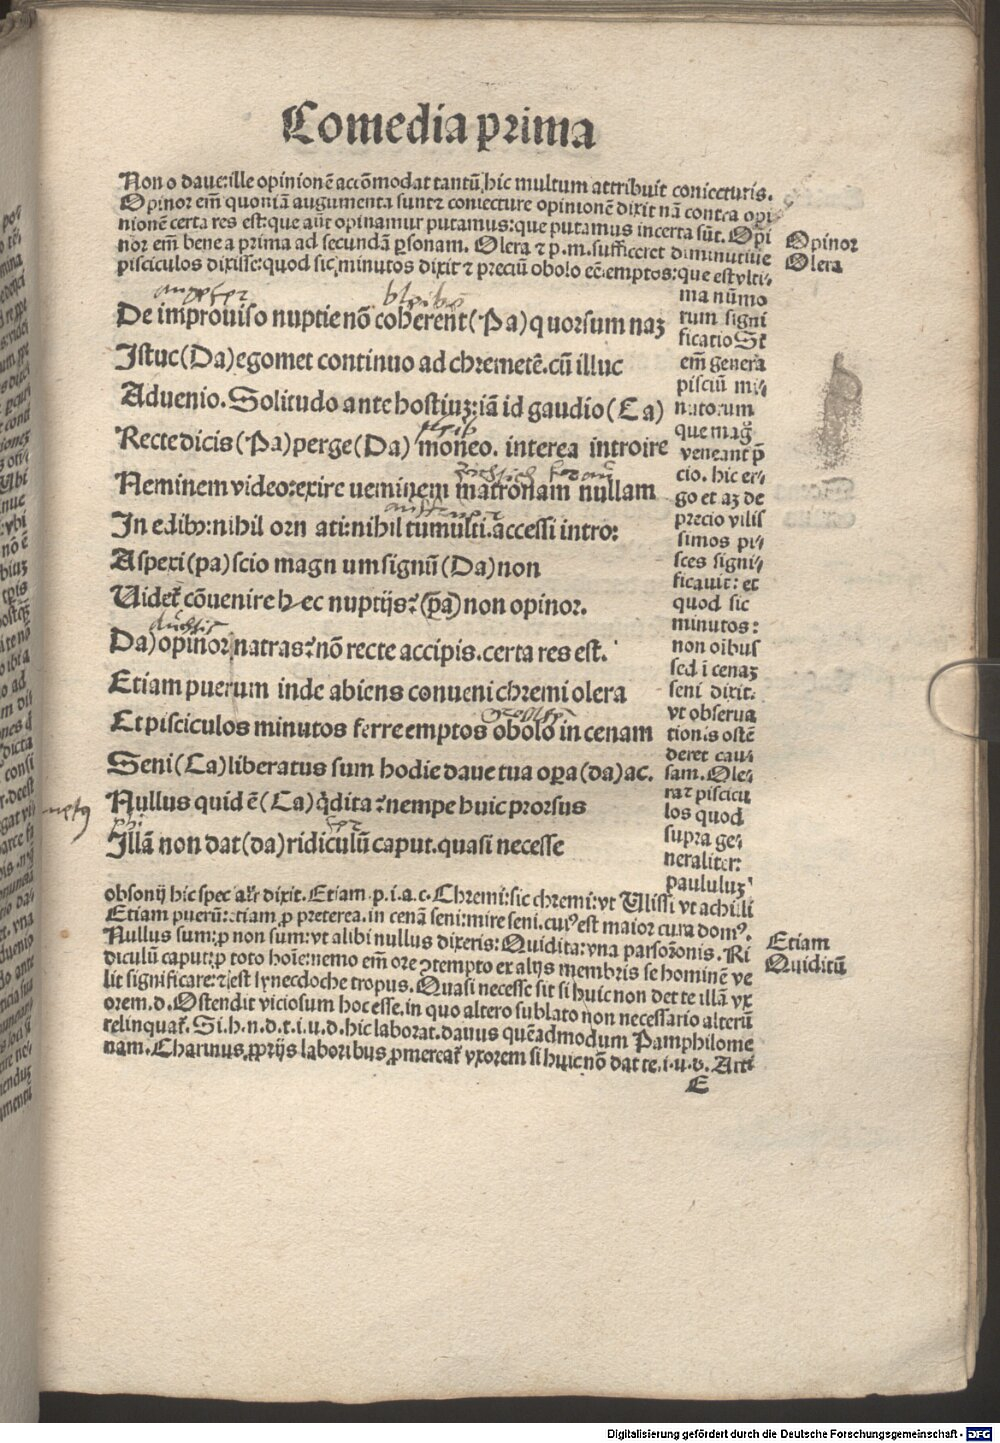 Comedia prima
Non o daue:ille opinionē accōmodat tantū,hic multum attribuit coniecturis.
Opinor em̄ quoniā augumenta sunt ⁊ coniecture opinionē dixit nā contra opi
nionē certa res est:que aūt opinamur putamus:que putamus incerta sūt. Opi
nor em̄ bene a prima ad secundā ꝑsonam. Olera ⁊ p.m.sufficeret diminutiue
pisciculos dixisse:quod sic,minutos dixit ⁊ preciū obolo eē.emptos:que est vlti⸗
Opinor
Olera
bleibē
De improuiso nuptie nō coherent(Pa)quorsum naꝫ
Istuc(Da)egomet continuo ad chremetē.cū illuc
Aduenio.Solitudo ante hostiuꝫ:iā id gaudio(Ca)
Recte dicis(Pa)perge(Da) moneo. interea introire
Neminem video:exire ueminem matronam nullam
In edibꝰ:nihil orn ati:nihil tumulti.accessi intro:
Aspexi(pa)scio magn um signū(Da)non
Uidet᷑ cōuenire h ec nuptijs?(p̄a)non opinor.
Da)opinor natras?nō recte accipis.certa res est.
Etiam puerum inde abiens conueni chremi olera
Et pisciculos minutos ferre emptos obolo in cenam
Seni(Ca)liberatus sum hodie daue tua oꝑa(da)ac.
Nullus quid ē(Ca)q̇dita?nempe huic prorsus
Illā non dat(da)ridiculū caput.quasi necesse
ma nūmo
rum signi
ficatio Sꝫ
em̄ genera
pisciū mi⸗
nutorum
que mag᷑
veneant p̄
cio. hic er⸗
go et aꝫ de
precio vilis
simos pi⸗
sces signi⸗
ficauit: et
quod sic
minutos:
non oībus
sed ī cenaꝫ
seni dixit.
vt obserua
tionis ostē
deret cau⸗
sam. Ole⸗
ra ⁊ piscicu
los quod
supra ge⸗
neraliter:
paululuꝫ
obsonij hic spec al᷑r dixit. Etiam.p.i.a.c.Chremi:sic chremi:vt Ulissi vt achilli
Etiam puerū:etiam ꝓ preterea.in cenā seni:mire seni.cuiꝰ est maior cura domꝰ.
Nullus sum:ꝓ non sum:vt alibi nullus dixeris:Quidita:vna parsoꝛonis. Ri
diculū caput:ꝓ toto hoīe:nemo em̄ ore ꝯtempto ex alijs membris se hominē ve
lit significare:⁊ est synecdoche tropus. Quasi necesse sit si huic non det te illā vx
orem.d.Ostendit viciosum hoc esse.in quo altero sublato non necessario alterū
relinquat᷑. Si.h.n.d.t.i.u.d.hic laborat.dauus quēadmodum Pamphilo me
nam.Charinus,ꝓprijs laboribus ꝓmereat᷑ vxorem si huic nō dat te.i.u.d. Arti
E
Etiam
Quiditū
Digitalisierung gefördert durch die Deutsche Forschungsgemeinschaft - DFG